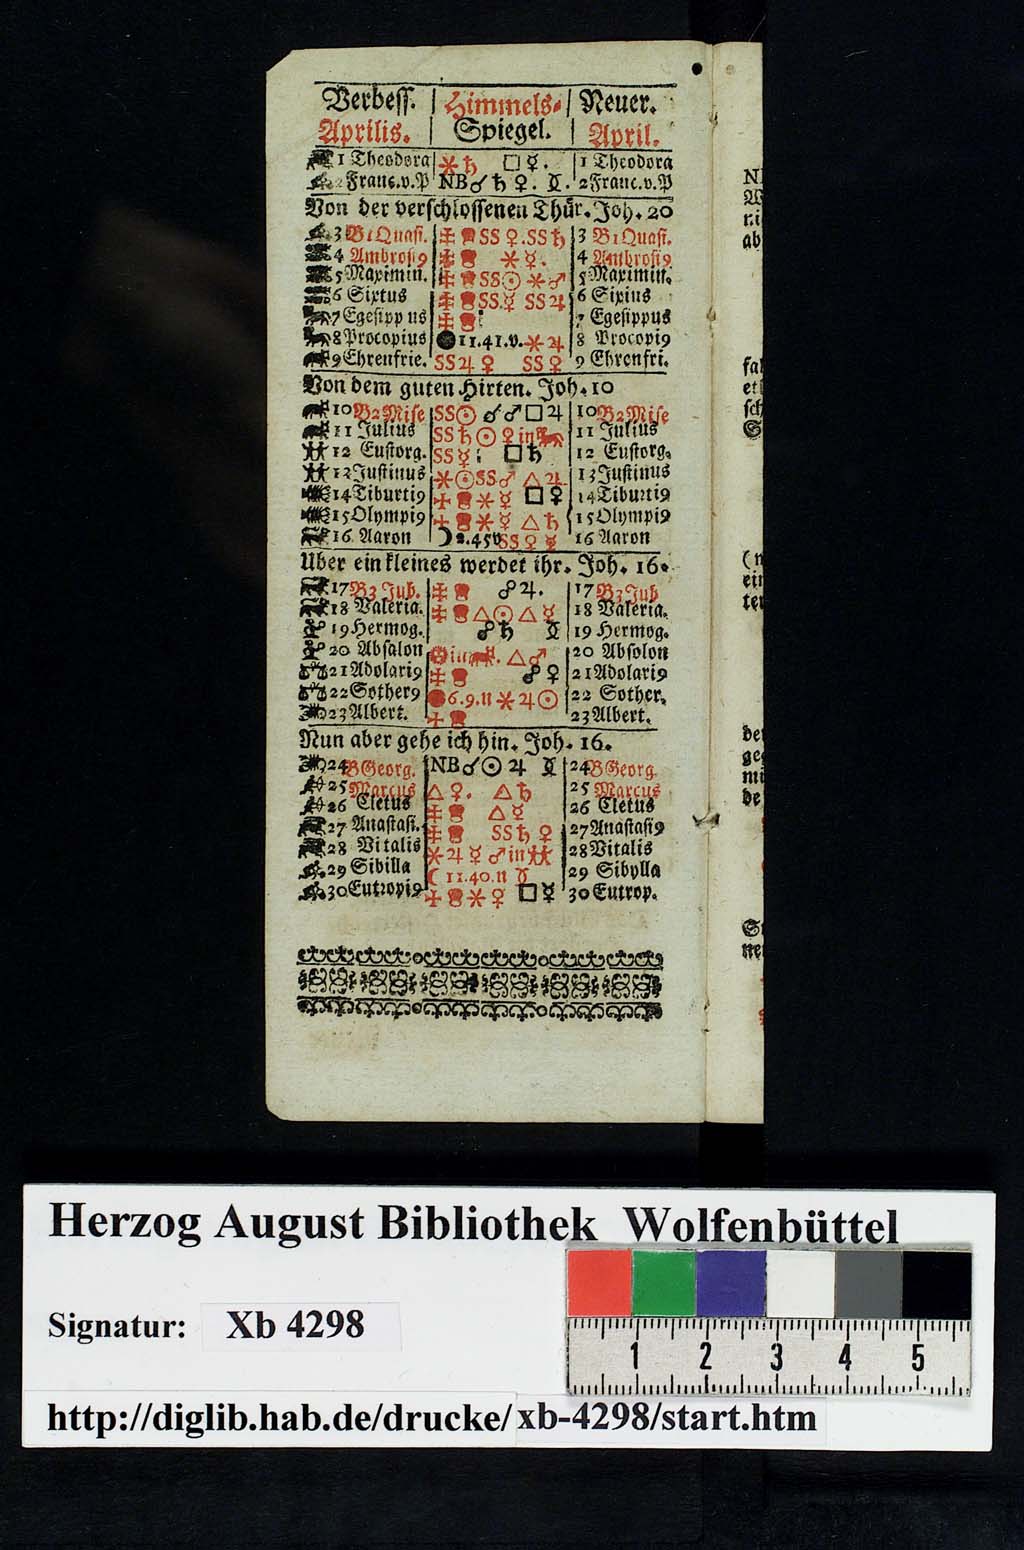 Verbess. | Himmels- | Neuer.
Aprilis. | Spiegel. | April.
1 Theodora | ⚹ ♄ □ ☿. | 1 Theodora
2 Franc.v.P | NB ☌ ♄ ♀. | 2 Franc.v.P
Von der verschlossenen Thür. Joh. 20
3 B1Quasi. | SS ♀. SS ♄ | 3 B1Quasi.
4 Ambrosi9 | ⚹ ☿. | 4 Ambrosi9
5 Maximin. | SS ☉ ⚹ ♂ | 5 Maximin.
6 Sixtus | SS. ☿ SS ♃ | 6 Sixius
7 Egesippus | 7 Egesippus
8 Procopius | ● 11.41.v. ⚹ ♃ | 8 Procopi9
9 Ehrenfrie. | SS ♃ ♀ SS ♀ | 9 Ehrenfri.
Von dem guten Hirten. Joh. 10
10 B2Mise | SS ☉ ☌ ♂ □ ♃ | 10 B2Mise
11 Julius | SS ♄ ☉ ♀ in ♌ | 11 Julius
12 Eustorg. | SS ☿ □ ♄ | 12 Eustorg.
12 Justinus | ⚹ ☉ SS ♂ △ ♃ | 13 Justinus
14 Tiburti9 | ⚹ ☿ □ ♀ | 14 Tiburti9
15 Olympi9 | ⚹ ☿ △ ♄ | 15 Olympi9
16 Aaron | ☽ 2.45v SS ♀ ☿ | 16 Aaron
Uber ein kleines werdet ihr. Joh. 16.
17 B3 Jub. | ☍ ♃. | 17 B3 Jub
18 Valeria. | △ ☉ △ ☿ | 18 Valeria.
19 Hermog. | ☍ ♄ | 19 Hermog.
20 Absalon | in ♉. △ ♂ | 20 Absolon
21 Adolari9 | ☍ ♀ | 21 Adolari9
22 Sother9 | 6.9.n ⚹ ♃ ☉ | 22 Sother.
23 Albert. | 23 Albert.
Nun aber gehe ich hin. Joh. 16.
24 B Georg. | NB ☌ ☉ ♃ | 24 B Georg.
25 Marcus | △ ♀. △ ♄ | 25 Marcus
26 Cletus | △ ☿ | 26 Cletus
27 Anastasi. | SS ♄ ♀ | 27 Anastasi9
28 Vitalis | ⚹ ♃ ☿ ♂ in ♊ | 28 Vitalis
29 Sibilla | ☾ 11.40.n | 29 Sibylla
30 Eutropi9 | ⚹ ♀ □ ☿ | 30 Eutrop.
Herzog August Bibliothek Wolfenbüttel
Signatur: Xb 4298
1 2 3 4 5
http://diglib.hab.de/drucke/xb-4298/start.htm